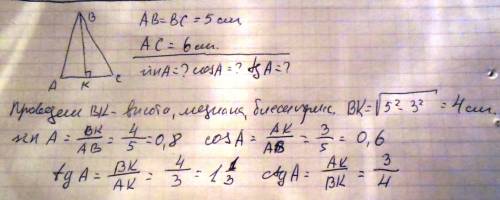 B
A
K
C
AB=BC=5см
AC=6см.
sinA=? cosA=? tgA=?
Проведем BK- высота, медиана, биссектриса. BK=√5²-3²=4см.
sin A = BK/AB = 4/5 = 0,8 cosA = AK/AB = 3/5 = 0,6
tgA = BK/AK = 4/3 = 1 1/3 ctgA = AK/BK = 3/4